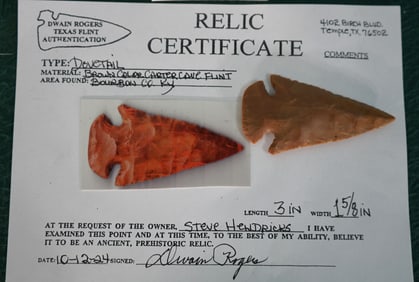 DWAIN ROGERS
TEXAS FLINT
AUTHENTICATION
RELIC
CERTIFICATE
4102 BIRCH BLVD.
TEMPLE, TX 76502
COMMENTS
TYPE: DOVETAIL
MATERIAL: BROWN COLOR CARTER CAVE FLINT
AREA FOUND: BOURBON CO. KY
LENGTH 3 IN WIDTH 1 5/8 IN
AT THE REQUEST OF THE OWNER, STEVE HENDRICKS I HAVE
EXAMINED THIS POINT AND AT THIS TIME, TO THE BEST OF MY ABILITY, BELIEVE
IT TO BE AN ANCIENT, PREHISTORIC RELIC.
DATE: 10-12-24 SIGNED: Dwain Rogers